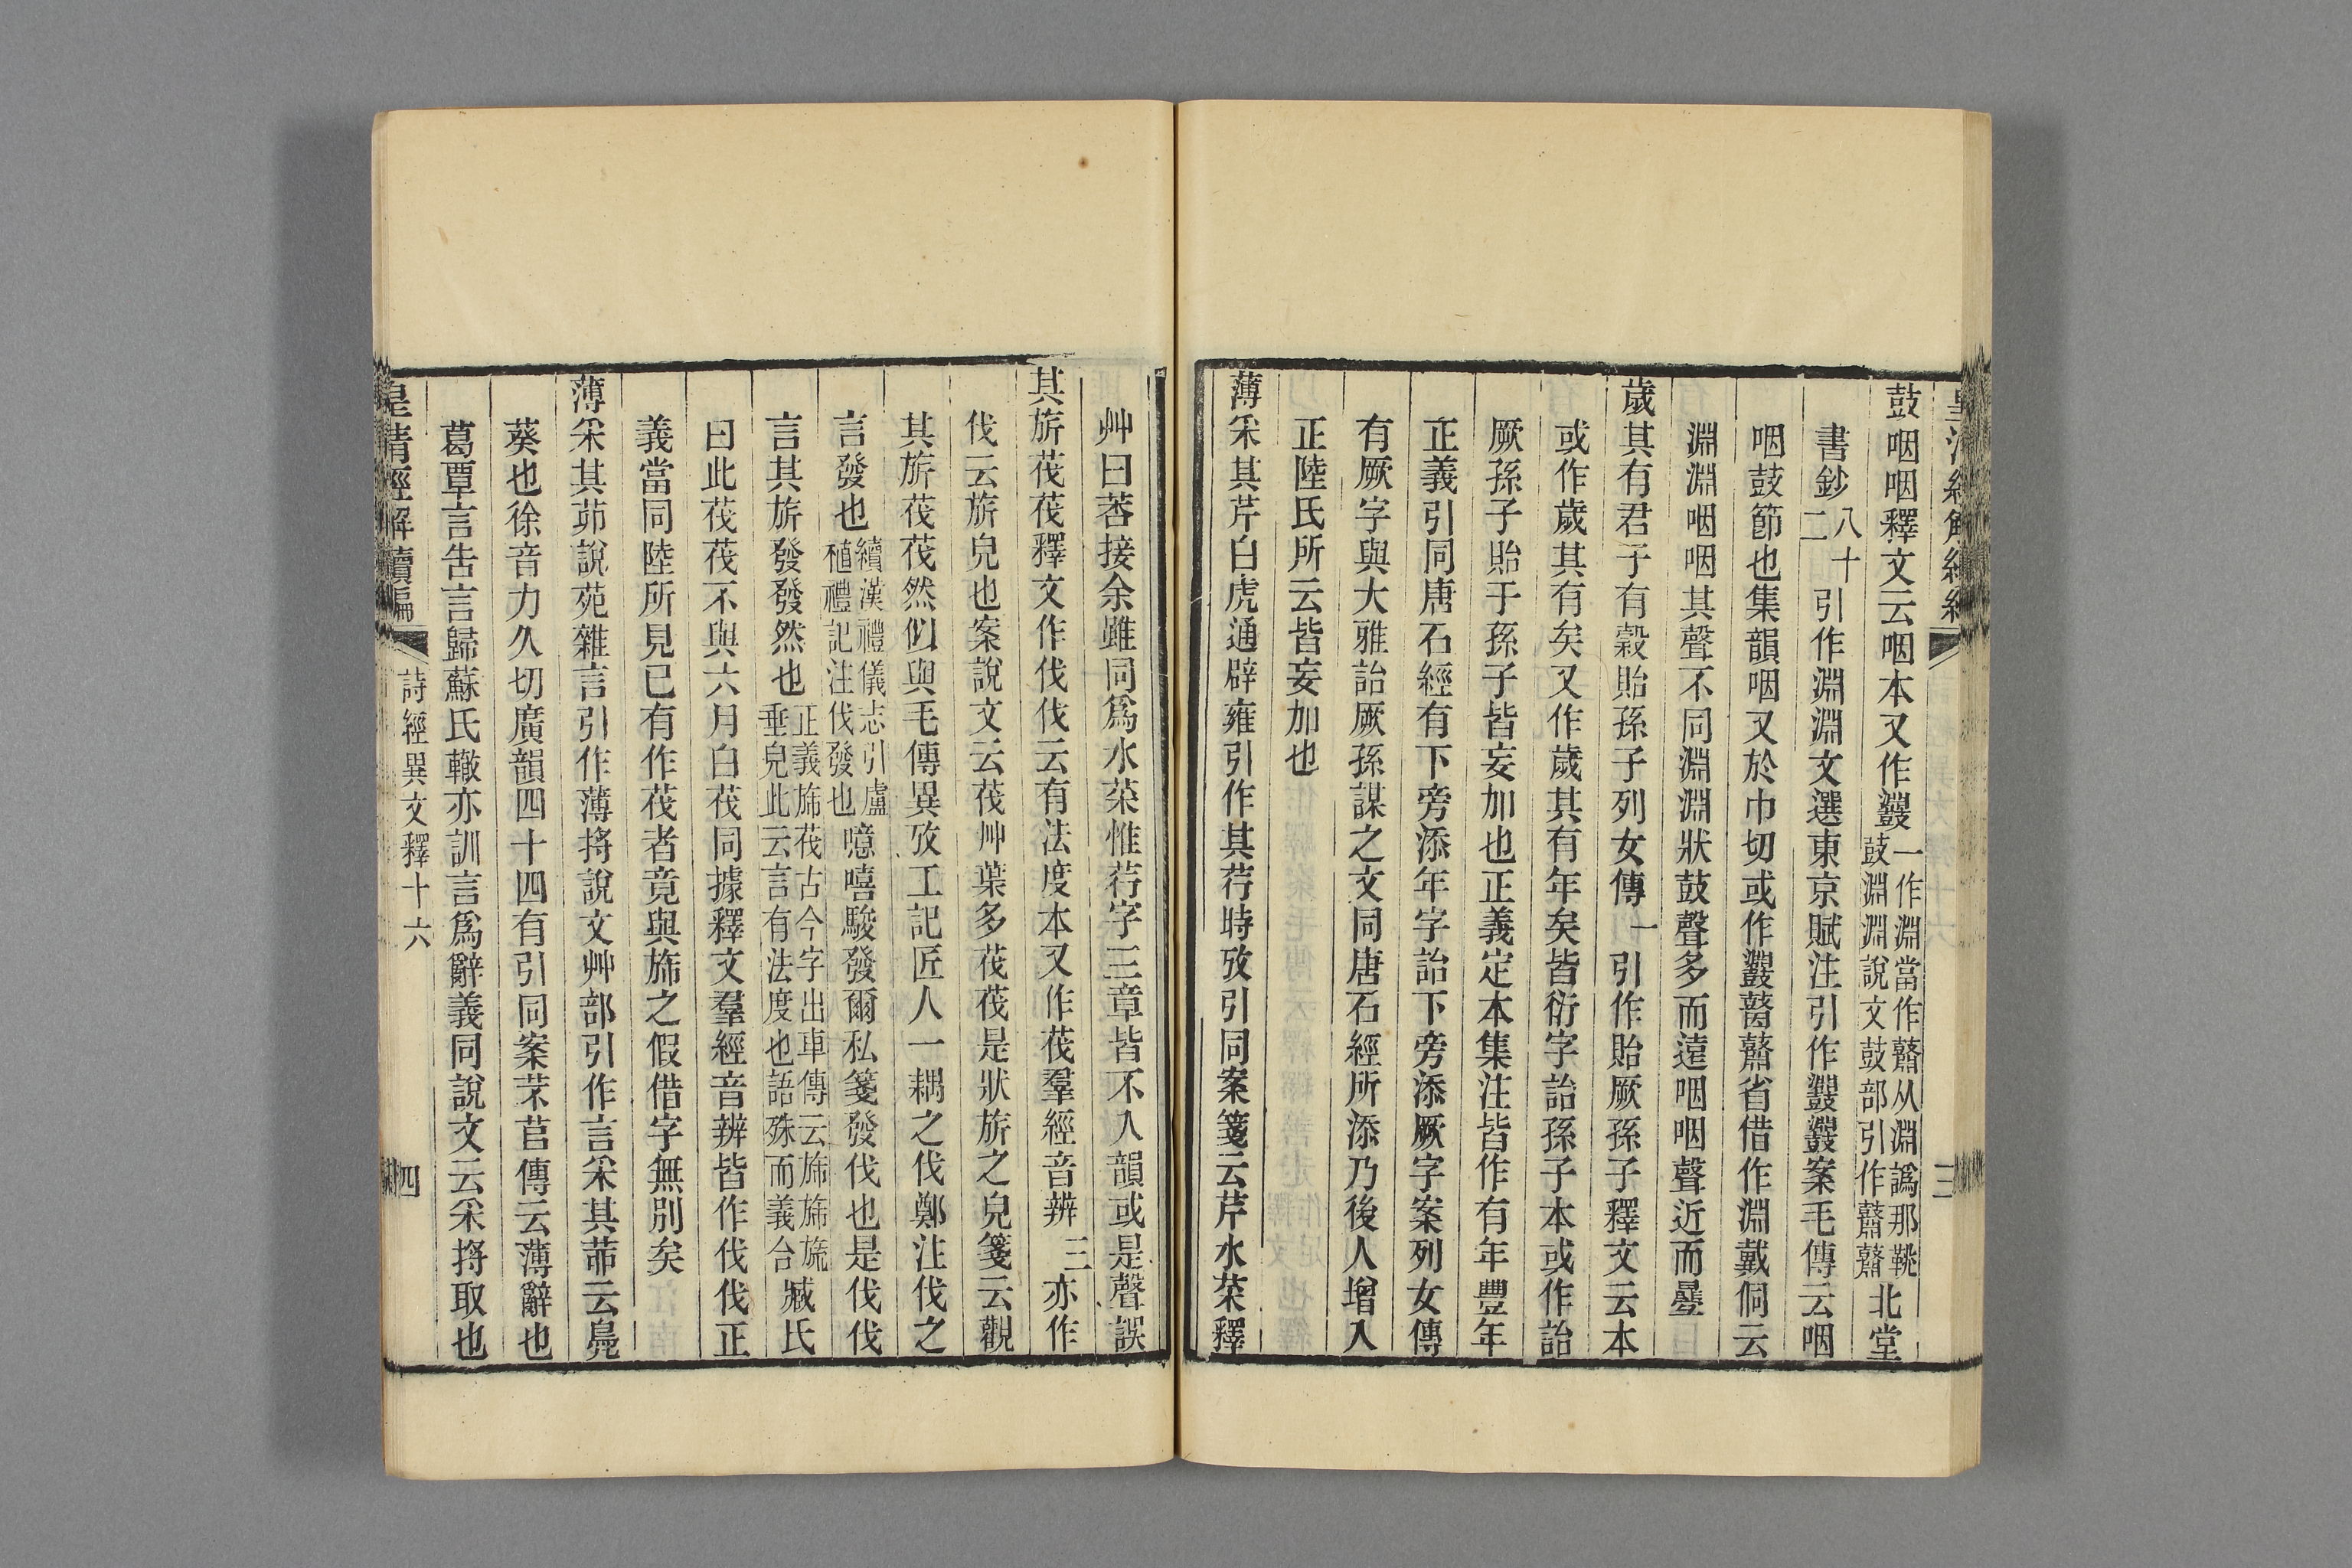 鼓咽咽釋文云咽本又作鼝一作淵當作鼘从淵譌那鞉鼓淵淵說文鼓部引作鼘鼘北堂
書鈔八十二引作淵淵文選東京賦注引作鼝鼝案毛傳云咽
咽鼓節也集韻咽又於巾切或作鼝鼛鼘省借作淵戴侗云
淵淵咽咽其聲不同淵淵狀鼓聲多而遠咽咽聲近而
歲其有君子有穀貽孫子列女傳一引作貽厥孫子釋文云本
或作歲其有矣又作歲其有年矣皆衍字詒孫子本或作詒
厥孫子貽于孫子皆妄加也正義定本集注皆作有年豐年
正義引同唐石經有下旁添年字詒下旁添厥字案列女傳
有厥字與大雅詒厥孫謀之文同唐石經所添乃後人增入
正陸氏所云皆妄加也
薄采其芹白虎通辟雍引作其荇時攷引同案箋云芹水菜釋
三
艸曰莕接余雖同爲水菜惟荇字三章皆不入韻或是聲誤
其旂茷茷釋文作伐伐云有法度本又作茷羣經音辨三亦作
伐云旂皃也案說文云茷艸葉多茷茷是狀旂之皃箋云觀
其旂茷茷然似與毛傳異攷工記匠人一耦之伐鄭注伐之
言發也續漢禮儀志引盧植禮記注伐發也噫嘻駿發爾私箋發伐也是伐伐
言其旂發發然也正義旆茷古今字出車傳云旆旆旒垂皃此云言有法度也語殊而義合臧氏
曰此茷茷不與六月白茷同據釋文羣經音辨皆作伐伐正
義當同陸所見已有作茷者竟與旆之假借字無別矣
薄采其茆說苑雜言引作薄捋說文艸部引作言采其茆云鳧
葵也徐音力久切廣韻四十四有引同案芣苢傳云薄辭也
葛覃言告言歸蘇氏轍亦訓言爲辭義同說文云采捋取也
皇清經解續編
詩經異文釋十六
四